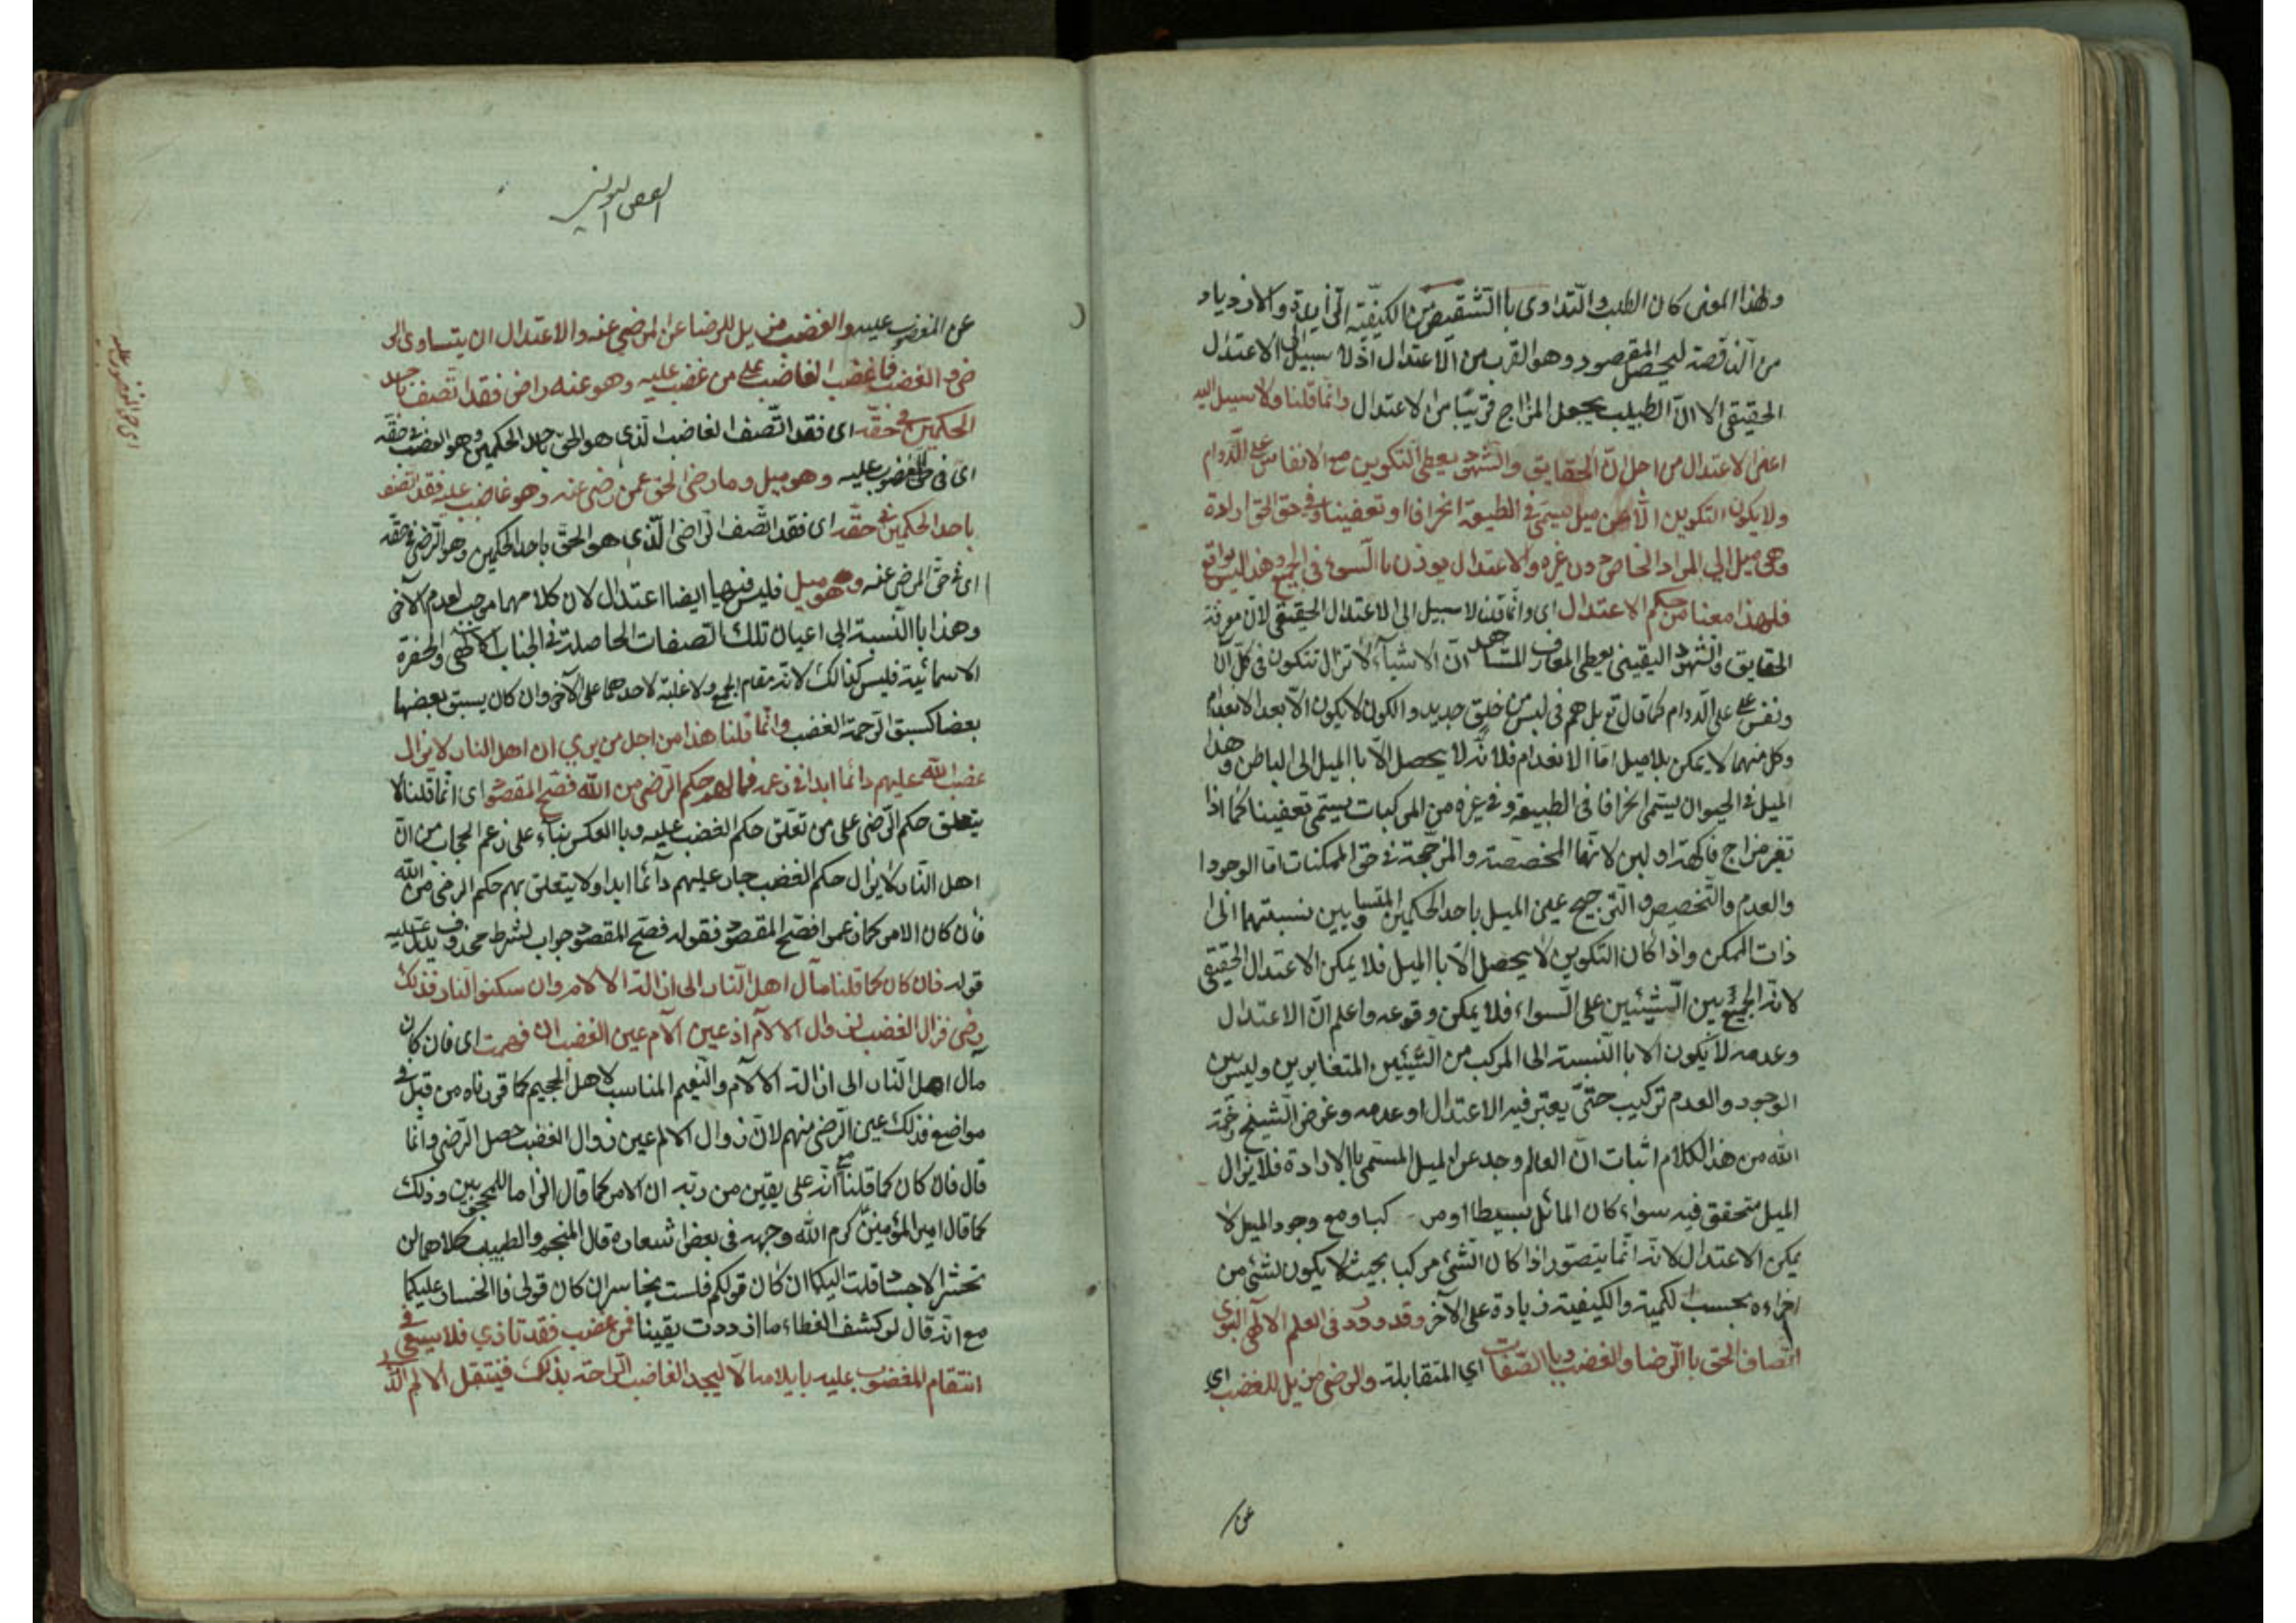 ولهذا المعنى كان الطب والتداوى با التنقيص من الكيفية الزايدة والازدياد
من الناقصة ليحصل المقصود وهو القرب من الاعتدال اذ لا سبيل الى الاعتدال
الحقيقى الا ان الطبيب يجعل المزاج قريبا من الاعتدال وانما قلنا ولا سبيل اليه
اعنى الاعتدال من اجل ان الحقايق والشهود يعطى التكوين مع الانفاس على الدوام
ولا يكون التكوين الا عن ميل يسمى فى الطبيعة انحرافا او تعفينا وفى حق الحق ارادة
وهى ميل الى المراد الخاص دون غيره والاعتدال يوذن با السوى فى الجميع وهذا ليس بواقع
فلهذا معنا من حكم الاعتدال اى وانما قلنا لا سبيل الى الاعتدال الحقيقى لان معرفة
الحقايق والشهود اليقينى يعطى المعارف المشاهد ان الاشياء لا تزال تتكون فى كل آن
ونفس على على الدوام كما قال تع بل هم فى لبس من خلق جديد والكون لا يكون الا بعد الانعدام
وكل منهما لا يمكن بلا ميل اما الانعدام فلانه لا يحصل الا با الميل الى الباطن وهذا
الميل فى الحيوان يسمى انحرافا فى الطبيعة وفى غيره من المركبات يسمى تعفينا كما اذا
تغير مزاج فاكهة او لبن لانها المخصصة والمرجحة فى حق الممكنات اما الوجود ا
والعدم والتخصيص والترجيح عين الميل باحد الحكمين المتساويين نسبتهما الى
ذات الممكن واذا كان التكوين لا يحصل الا با الميل فلا يمكن الاعتدال الحقيقى
لانه الجمع بين الشيئين على السواء فلا يمكن وقوعه واعلم ان الاعتدال
وعدمه لا يكون الا با النسبة الى المركب من الشيئين المتغايرين وليس بين
الوجود والعدم تركيب حتى يعتبر فيه الاعتدال او عدمه وغرض الشيخ رحمة
الله من هذ الكلام اثبات ان العالم وجد عن الميل المسمى با الارادة فلا يزال
الميل متحقق فيه سواء كان المائل بسيطا او مر كبا ومع وجود الميل لا
يمكن الاعتدال لانه انما يتصور اذا كان الشئ مركبا بحيث لا يكون لشئ من
اجزاءه بحسب الكمية والكيفية زيادة على الآخر وقد ورد فى العلم الالهى النبوى
اتصاف الحق با الرضا والغضب وبا الصفات اي المتقابلة والرضى مزيل للغضب اي
عن
الفص اليوبى
عن المغضوب عليه والغضب مزيل للرضا عن المرضى عنه والاعتدال ان يتساوى الر
ضى والغضب فما غضب الغاضب على من غضب عليه وهو عنه راض فقد اتصف باحد
الحكمين فى حقه اى فقد اتصف الغاضب الذى هو الحق باحد الحكمين وهو الغضب فى حقه
اى فى حق المغضوب عليه وهو ميل وما رضى الحق عمن رضى عنه وهو غاضب عليه فقد اتصف
باحد الحكمين فى حقه اى فقد اتصف الراضى الذى هو الحق باحد الحكمين وهو الرضى فى حقه
اى فى حق المرضى عنه وهو ميل فليس فيهما ايضا اعتدال لان كلا منهما موجب لعدم الآخر
وهذا با النسبة الى اعيان تلك الصفات الحاصلة فى الجناب الالهى والحضرة
الاسمائية فليس كذالك لانه مقام الجمع ولا غلبة لاحدهما على الآخر وان كان يسبق بعضها
بعضا كسبق الرحمة الغضب وانما قلنا هذا من اجل من يري ان اهل النار لا يزال
غضب الله عليهم دائما ابدا فى زعمه فما لهم حكم الرضى من الله فصح المقصود اى انما قلنا لا
يتعلق حكم الرضى على من تعلق حكم الغضب عليه وبا العكس بناء على زعم الحجاب من ان
اهل النار لا يزال حكم الغضب جار عليهم دآئما ابدا ولا يتعلق بهم حكم الرضى من الله
فان كان الامر كما زعموا فصح المقصود فقوله فصح المقصود جواب لشرط محذوف يدل عليه
قوله فان كان كما قلنا مآل اهل النار الى ازالة الالام وان سكنوا النار فذلك
رضى فزال الغضب لزوال الالآم اذ عين الآم عين الغضب ان فهمت اى فان كان
مآل اهل النار الى ازالة الالآم والنعيم المناسب لاهل الجحيم كما قررناه من قبل فى
مواضع فذلك عين الرضى منهم لان زوال الالم عين زوال الغضب حصل الرضى وانما
قال فان كان كما قلنا مع انه على يقين من ربه ان الامر كما قال الزاما للمحجوبين وذلك
كما قال امير المؤمنين كرم الله وجهه فى بعض اشعاره قال المنجم والطبيب كلاهما لن
تحشر الاجساد قلت اليكما ان كان قولكم فلست بخاسر ان كان قولى فا الخسار عليكما
مع انه قال لو كشف الغطاء ما ازددت يقينا فمن غضب فقد تاذي فلا يسعى فى
انتقام المغضوب عليه بايلامه الا ليجد الغاضب الراحة بذلك فينتقل الالم الذ